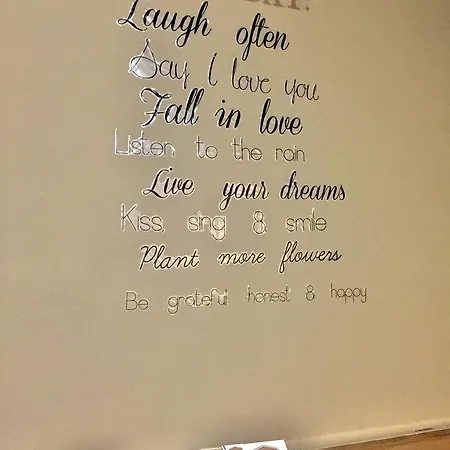 Laugh often
Say I love you
Fall in love
Listen to the rain
Live your dreams
Kiss, sing & smile
Plant more flowers
Be grateful honest & happy